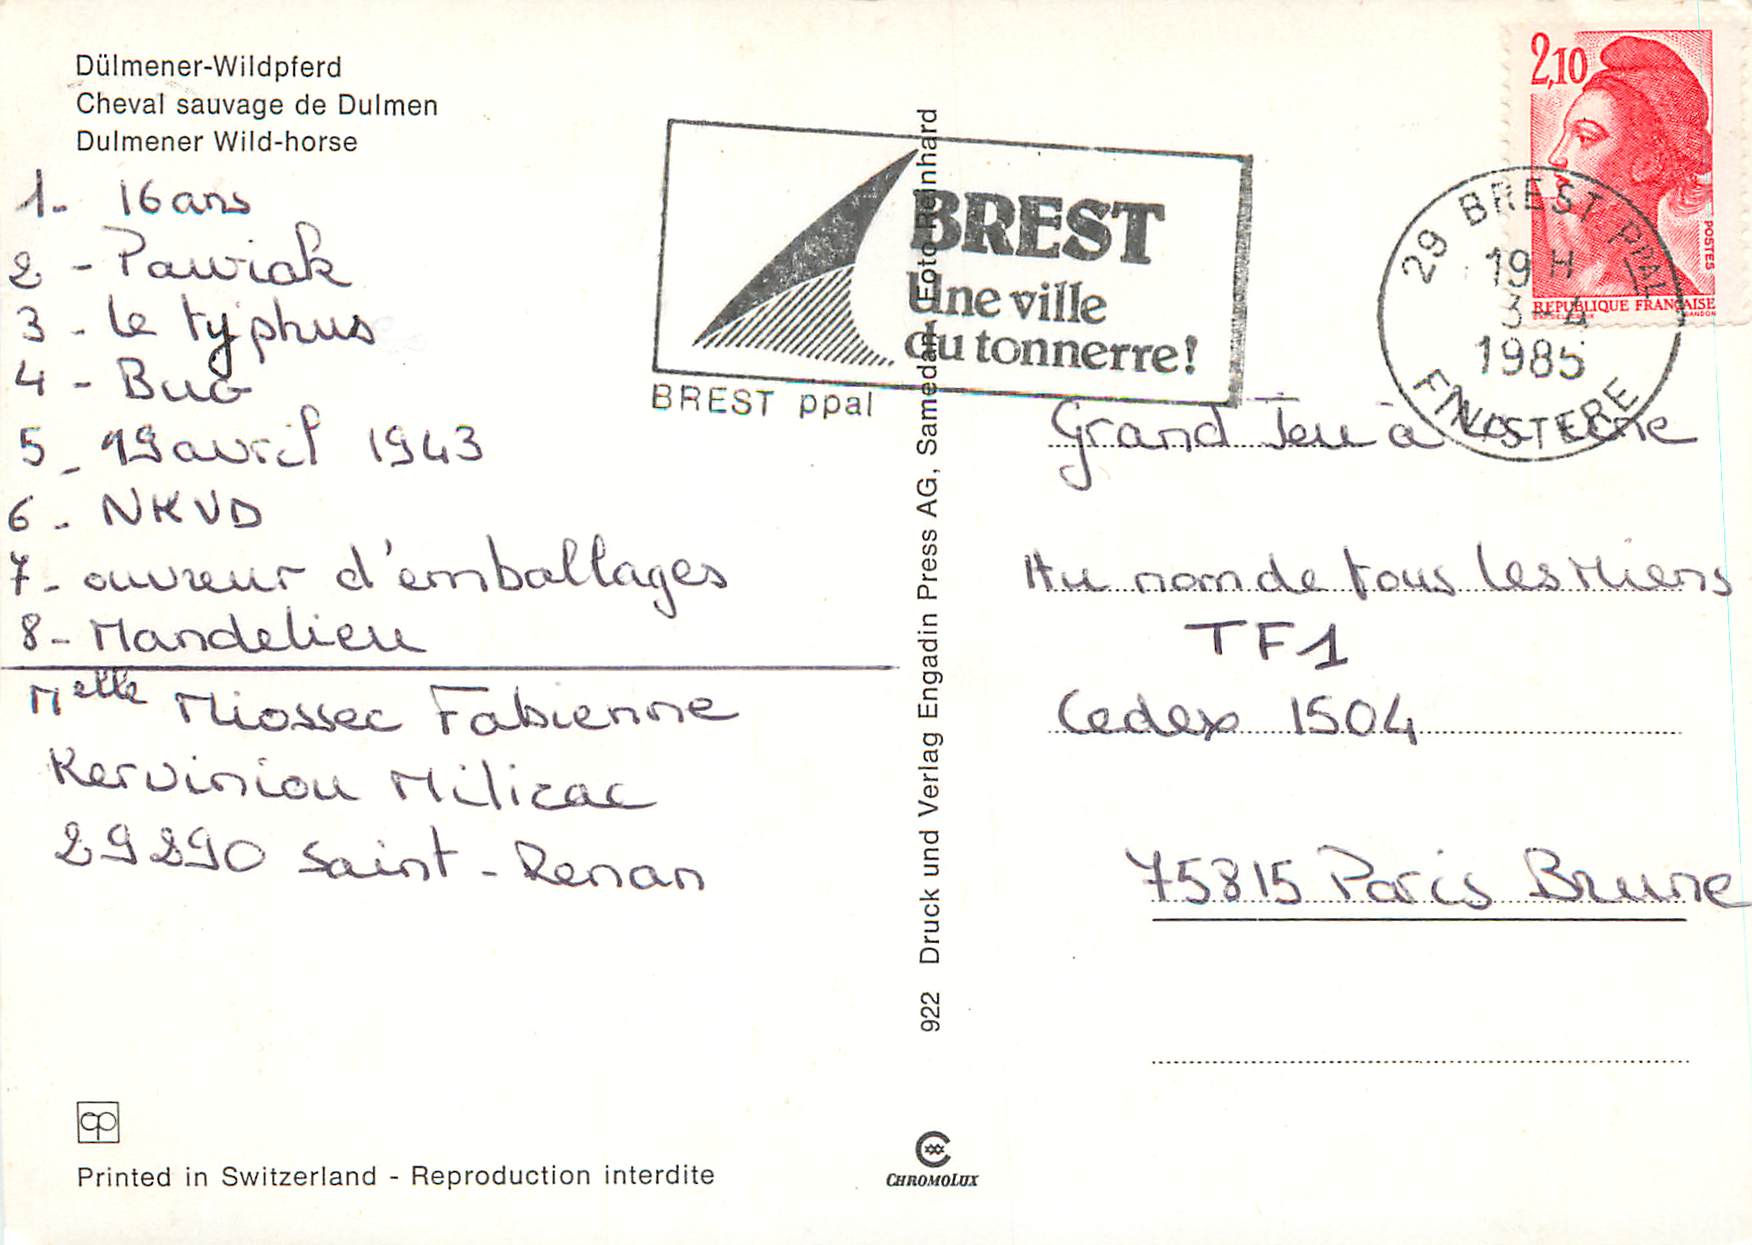 Dülmener-Wildpferd
Cheval sauvage de Dulmen
Dulmener Wild-horse
1- 16 ans
2 - Pawiak
3 - le typhus
4 - Bug
5 - 19 avril 1943
6 - NKVD
7 - ouvreur d'emballages
8 - Mandelieu
Melle Miossec Fabienne
Kerviniou Milizac
29290 Saint-Renan
Printed in Switzerland - Reproduction interdite
922 Druck und Verlag Engadin Press AG, Samedan, Foto Reinhard
CHROMOLUX
BREST
Une ville
du tonnerre!
BREST ppal
2,10
POSTES
REPUBLIQUE FRANÇAISE
29 BREST PPAL
19 H
3-4
1985
FINISTERE
Grand Jeu à
Au nom de tous les Miens
TF1
Cedex 1504
75815 Paris Brune